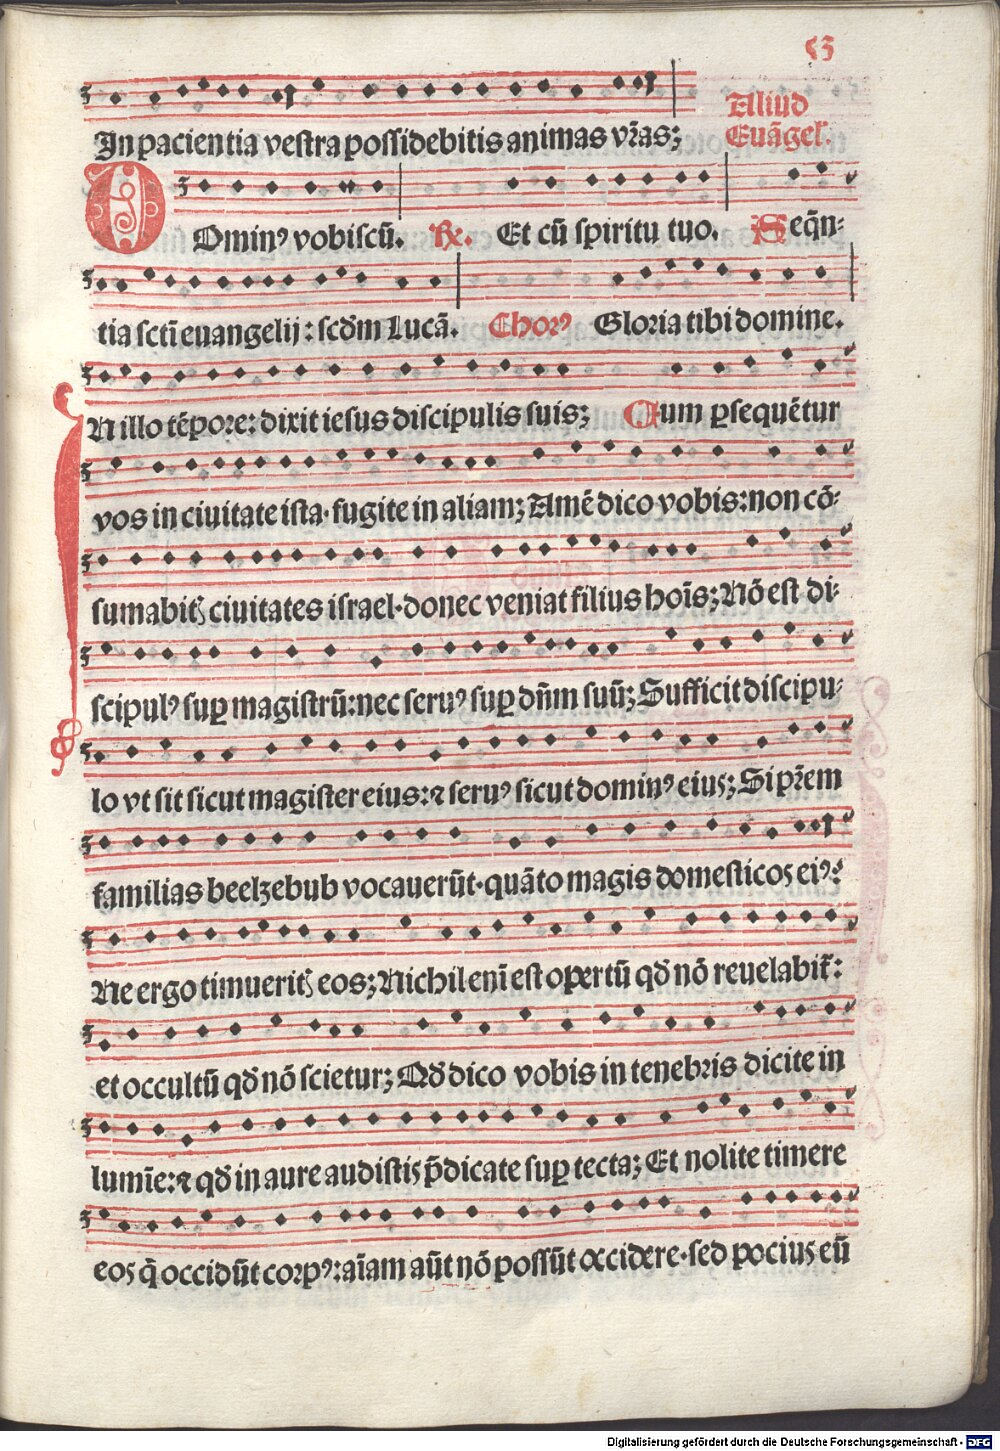 53
In pacientia vestra possidebitis animas vr̃as;
Aliud
Euãgel'.
Dominꝰ vobiscũ. ℟. Et cũ spiritu tuo. Seqñ-
tia scti euangelij: scd̃m Lucã. Chorꝰ Gloria tibi domine.
IN illo tẽpore: dixit iesus discipulis suis; Cum ꝑsequẽtur
vos in ciuitate ista· fugite in aliam; Amẽ dico vobis: non cõ-
sumabitꝭ ciuitates israel· donec veniat filius hoĩs; Nõ est di-
scipulꝰ suꝑ magistrũ: nec seruꝰ suꝑ dñm suũ; Sufficit discipu-
lo vt sit sicut magister eius: ⁊ seruꝰ sicut dominꝰ eius; Si pr̃em
familias beelzebub vocauerũt· quãto magis domesticos eiꝰ?
Ne ergo timueritꝭ eos; Nichil enĩ est opertũ qd̃ nõ reuelabit̃:
et occultũ qd̃ nõ scietur; Qd̃ dico vobis in tenebris dicite in
lumĩe: ⁊ qd̃ in aure audistis p̃dicate suꝑ tecta; Et nolite timere
eos q̃ occidũt corpꝰ: aĩam aũt nõ possũt occidere· sed pocius eũ
Digitalisierung gefördert durch die Deutsche Forschungsgemeinschaft - DFG